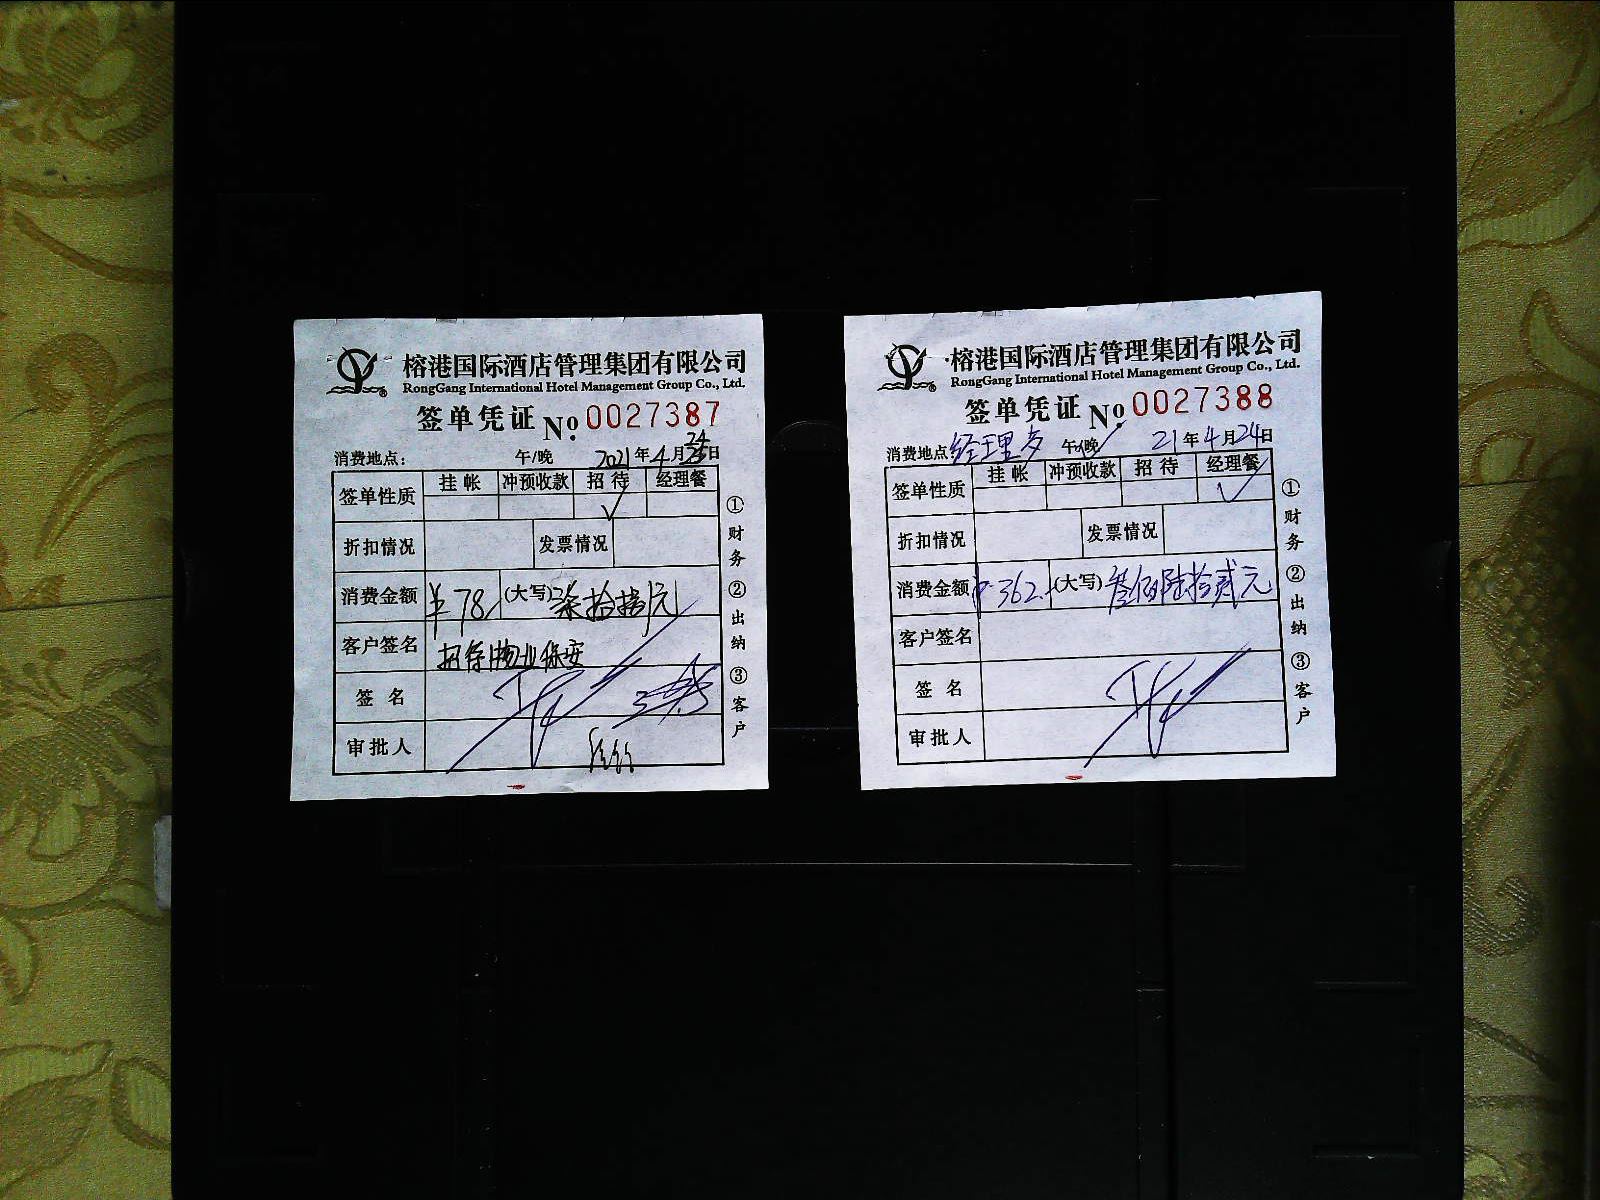 榕港国际酒店管理集团有限公司
RongGang International Hotel Management Group Co., Ltd.
签单凭证 No. 0027387
消费地点： 午/晚 2021年4月24日
签单性质 挂帐 冲预收款 招待 经理餐
√
折扣情况 发票情况
消费金额 ¥78. (大写) 柒拾捌元
客户签名 招待物业保安
签 名
审批人
①财务 ②出纳 ③客户
榕港国际酒店管理集团有限公司
RongGang International Hotel Management Group Co., Ltd.
签单凭证 No. 0027388
消费地点 经理 午/晚 21年4月24日
签单性质 挂帐 冲预收款 招待 经理餐
√
折扣情况 发票情况
消费金额 ¥362. (大写) 叁佰陆拾贰元
客户签名
签 名
审批人
①财务 ②出纳 ③客户